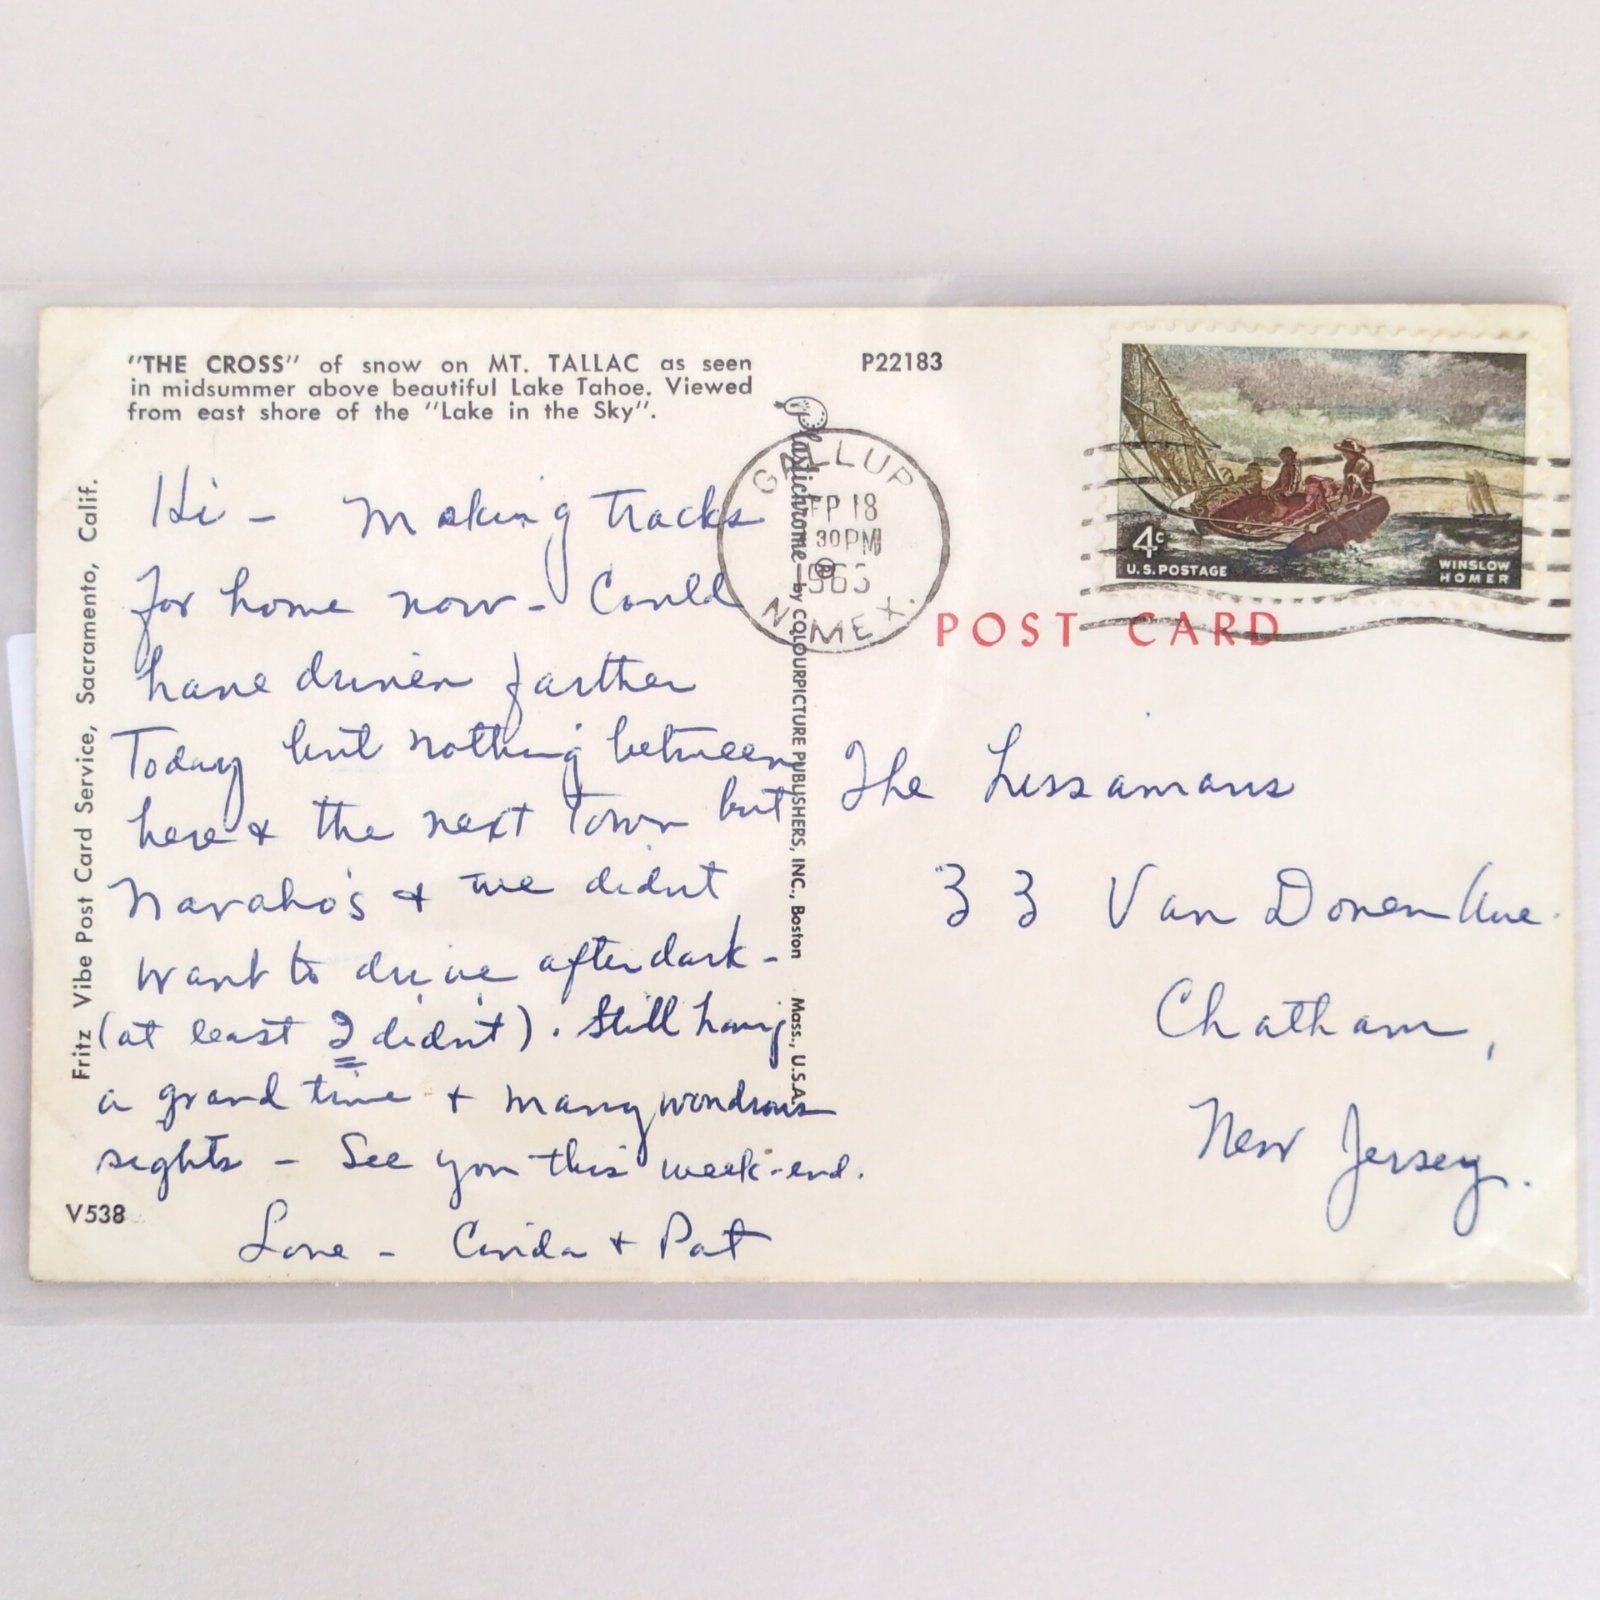 "THE CROSS" of snow on MT. TALLAC as seen
in midsummer above beautiful Lake Tahoe. Viewed
from east shore of the "Lake in the Sky".
P22183
Hi - Making tracks
for home now - Could
have driven farther
Today but nothing between
here & the next Town but
Navaho's & we didn't
want to drive after dark -
(at least I didn't). Still having
a grand time + many wondrous
sights - See you this week-end.
Love - & Pat
V538
Fritz Vibe Post Card Service, Sacramento, Calif.
Plastichrome ® by COLOURPICTURE PUBLISHERS, INC., Boston Mass., U.S.A.
GALLUP
EP 18
30 PM
N. MEX.
4c
U.S. POSTAGE
WINSLOW
HOMER
POST CARD
The Lissamans
33 Van Doren Ave.
Chatham,
New Jersey.